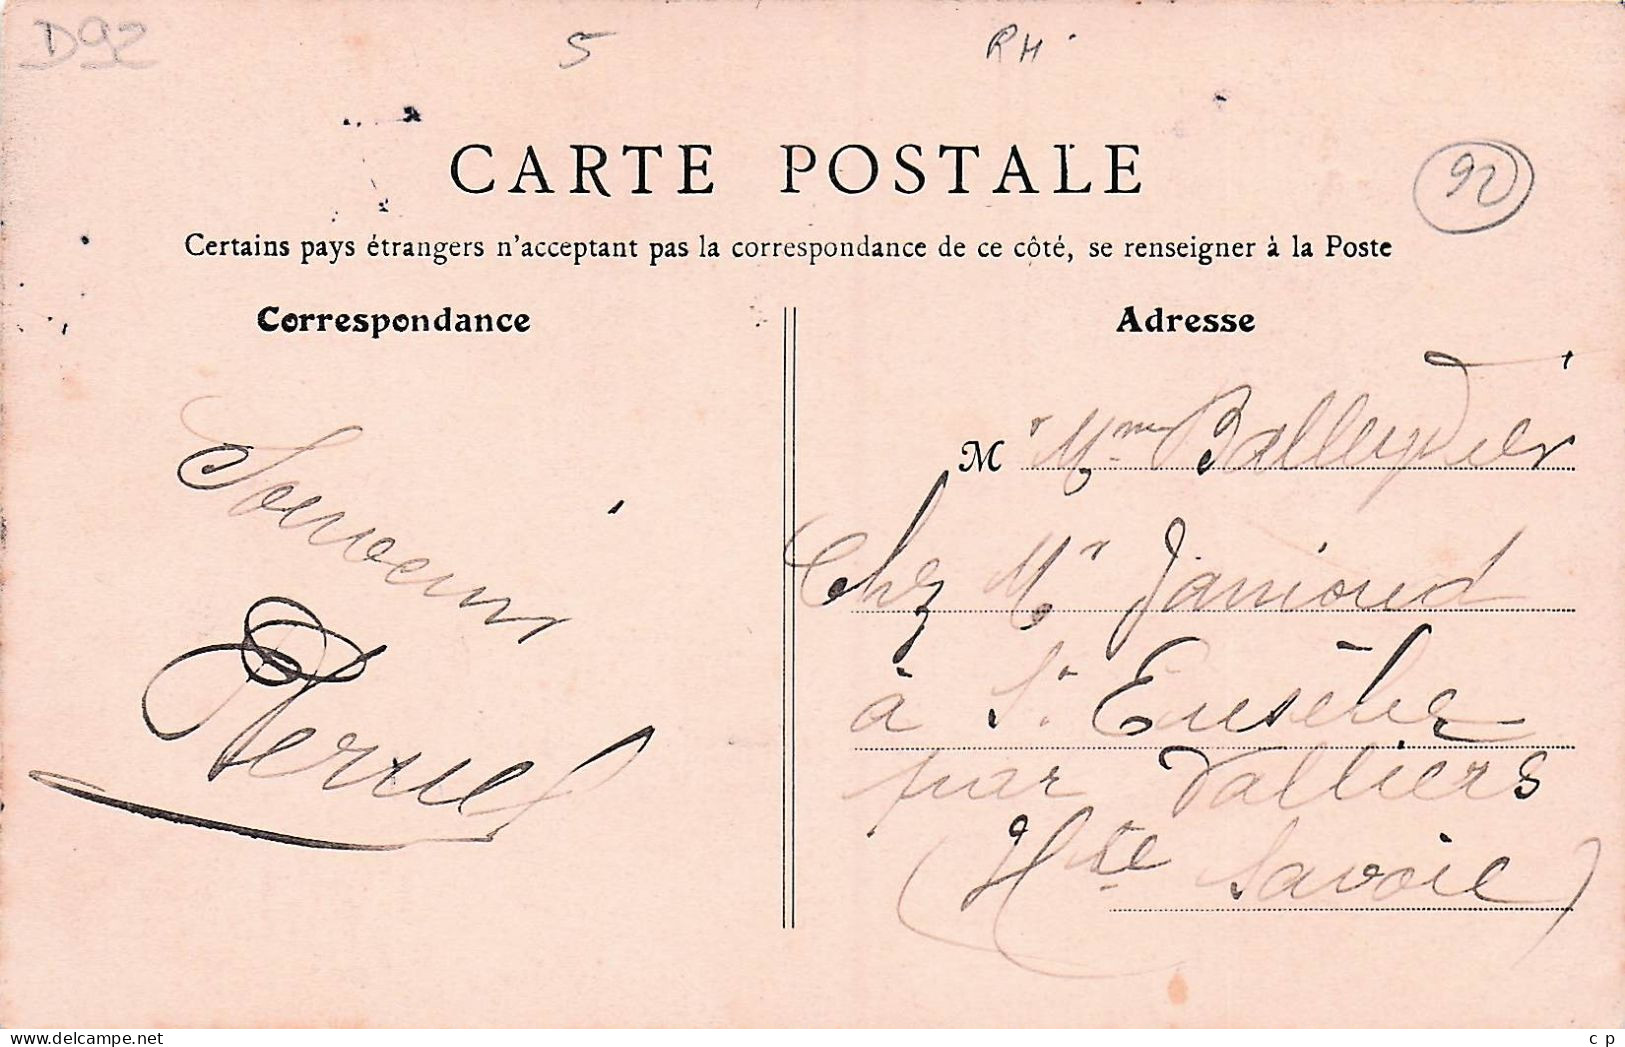 D92
5
RH
CARTE POSTALE
92
Certains pays étrangers n'acceptant pas la correspondance de ce côté, se renseigner à la Poste
Correspondance
Adresse
Souvenir
M r Mme Balleydier
Chez Mr Janioud
à St. Eusèbe
par Valliers
(Hte Savoie)
delcampe.net
c p